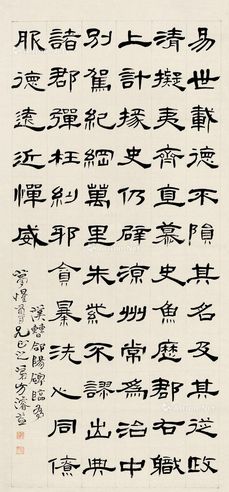 易世載德不隕其名及其從政
清擬夷齊直慕史魚歷郡右職
上計掾史仍辟涼州常為治中
別駕紀綱萬里朱紫不謬出典
諸郡彈枉糾邪貪暴洗心同僚
服德遠近憚威
漢曹郃陽碑臨
兄正之弟方濬益